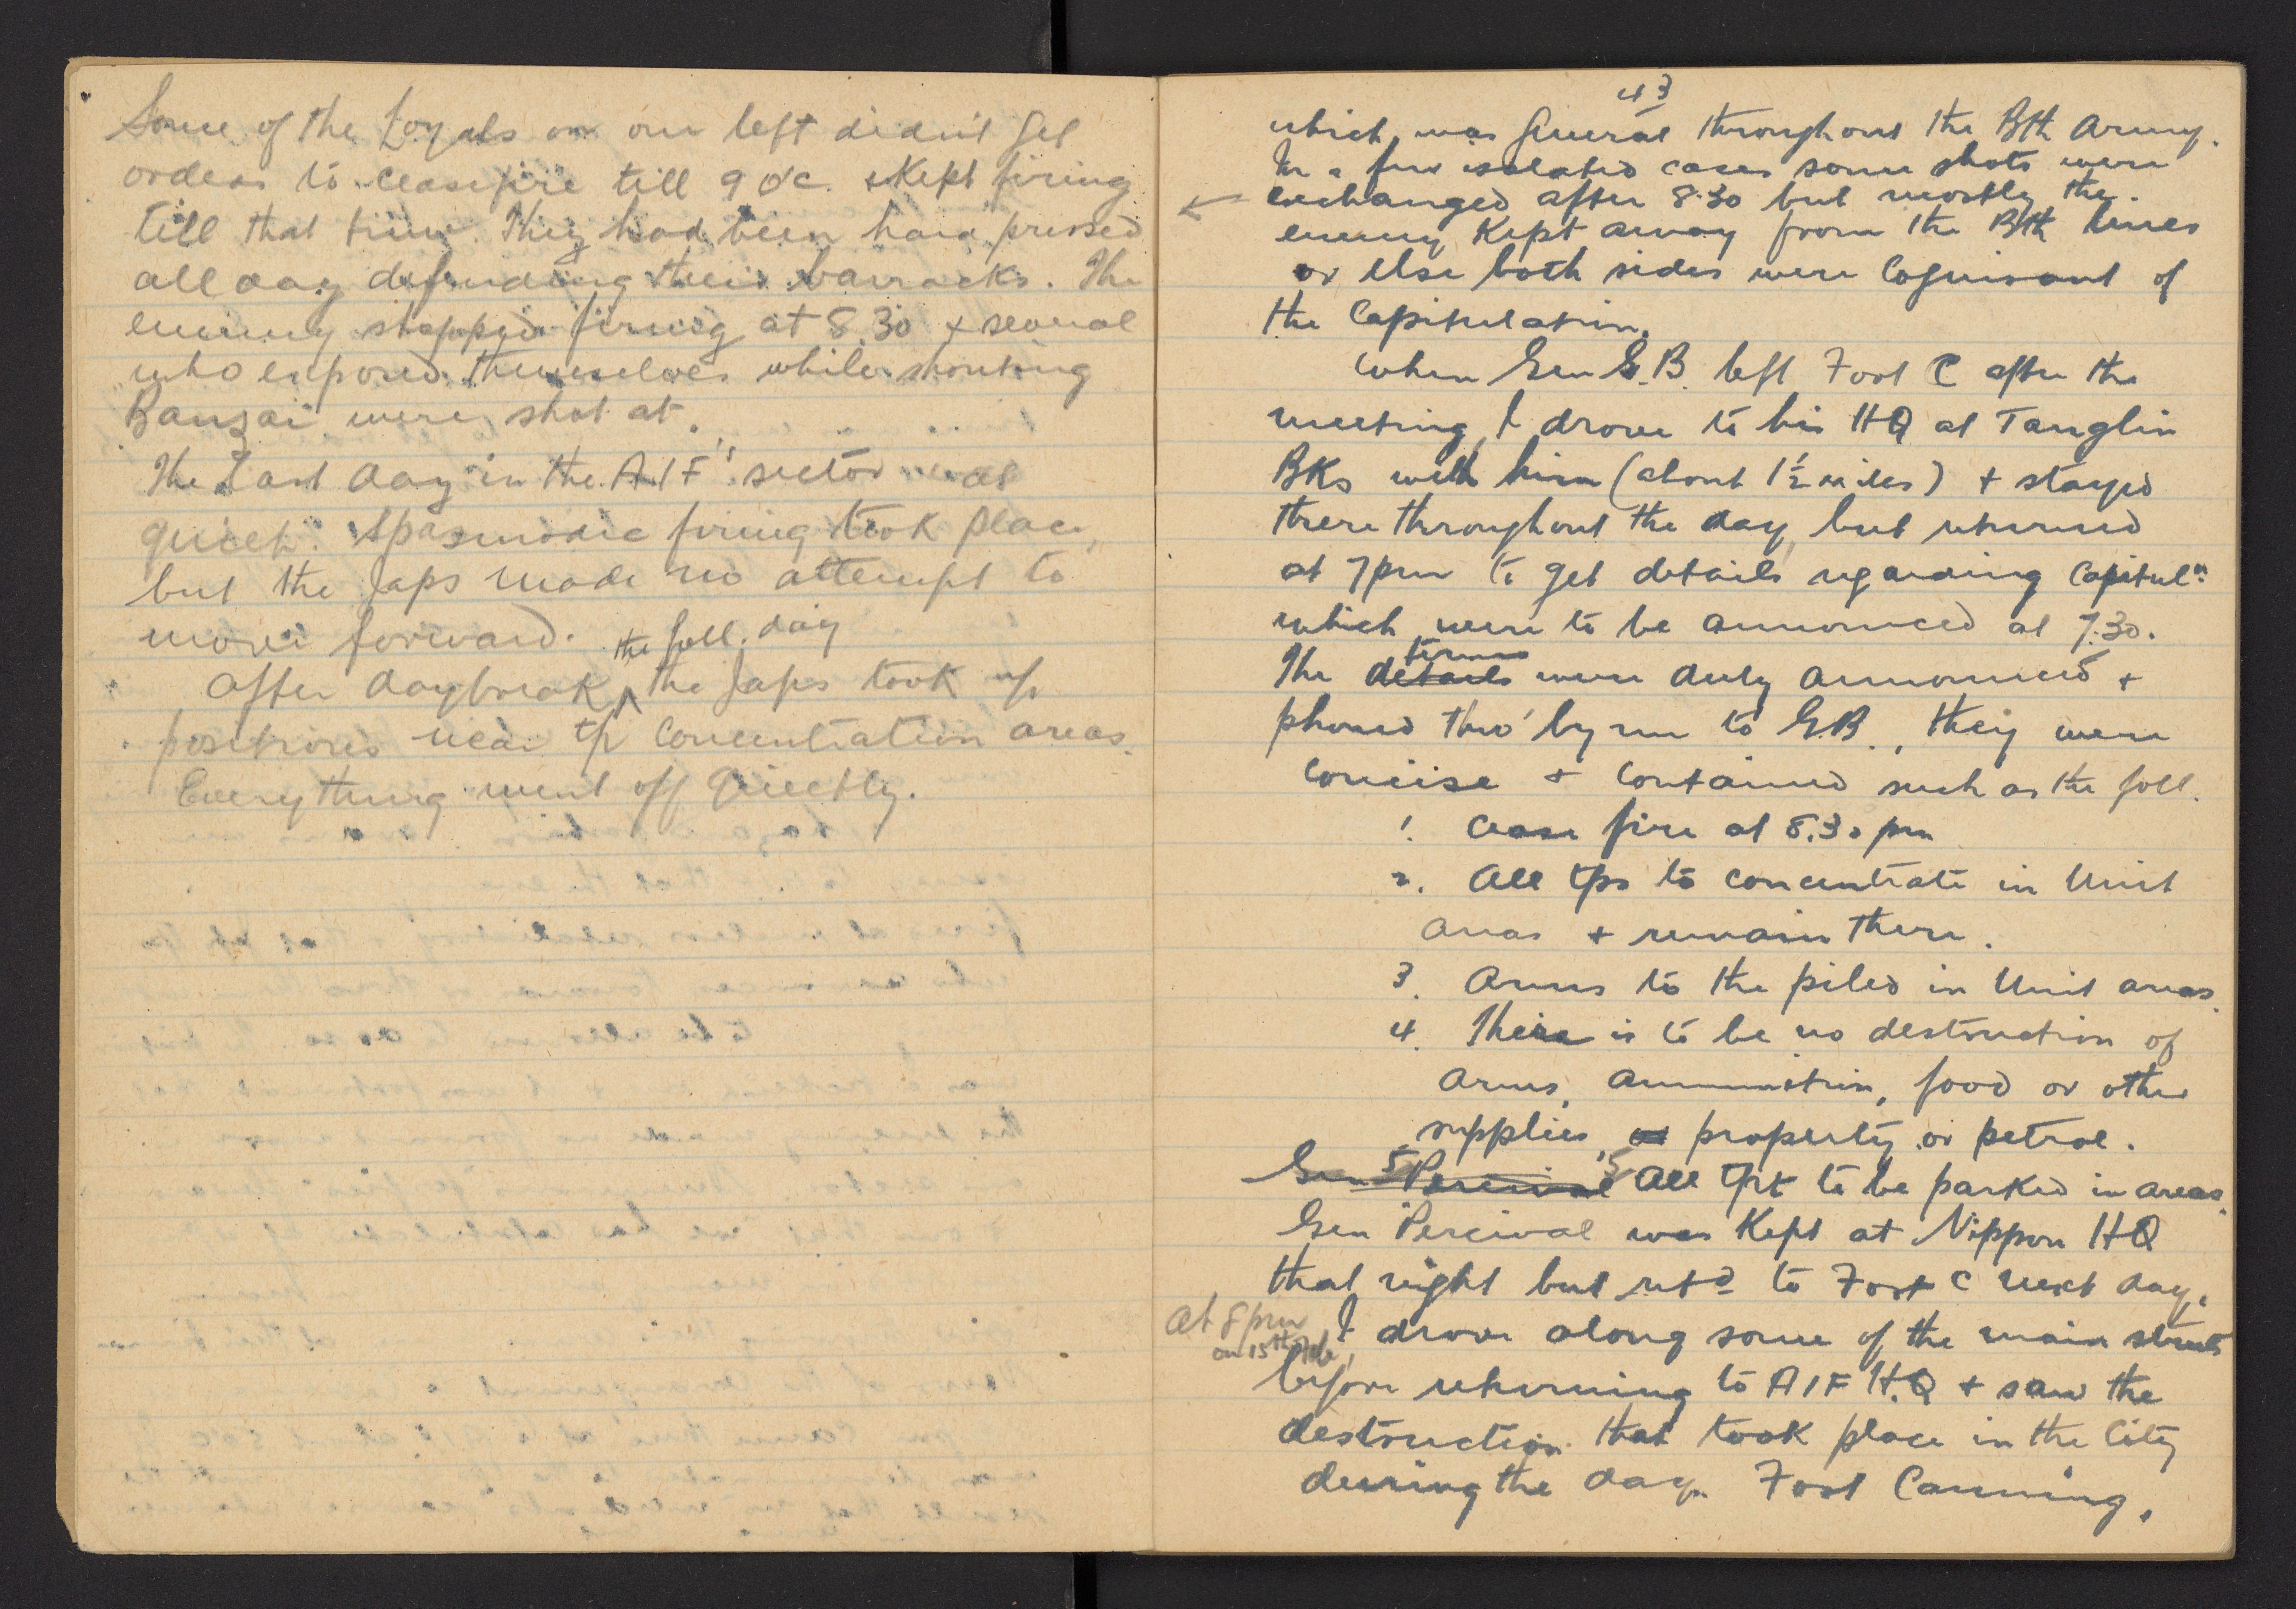 Some of the Loyals on our left didn't get
orders to cease fire till 9 oc. & kept firing
till that time. They had been hard pressed
all day defending their barracks. The
enemy stopped firing at 8.30 & several
who exposed themselves while shouting
Banzai were shot at.
The last day in the AIF sector was
quiet. Spasmodic firing took place,
but the Japs made no attempt to
move forward.
the foll. day
After daybreak ^ the Japs took up
positions near tp concentration areas.
Everything went off quietly.
43
which was general throughout the Bth Army.
In a few isolated cases some shots were
← exchanged after 8.30 but mostly the
enemy kept away from the Bth lines
or else both sides were cognisant of
the Capitulation.
When Gen G.B. left Fort C after the
meeting, I drove to his HQ at Tanglin
BKs with him (about 1½ miles) + stayed
there throughout the day, but returned
at 7pm to get details regarding Capituln.
which were to be announced at 7.30.
terms
The details were duly announced +
phoned thro' by me to G.B., they were
conciise + contained such as the foll.
1. Cease fire at 8.30 pm
2. All tps to concentrate in Unit
areas + remain there.
3. Arms to the piled in Unit areas.
4. There is to be no destruction of
arms, ammunition, food or other
supplies, or property or petrol.
Gen Percival 5 All tpt to be parked in areas.
Gen Percival was kept at Nippon HQ
that night but retd to Fort C next day.
At 8pm
on 15th Feb,
I drove along some of the main streets
before returning to AIF H.Q + saw the
destruction that took place in the City
during the day. Fort Canning,